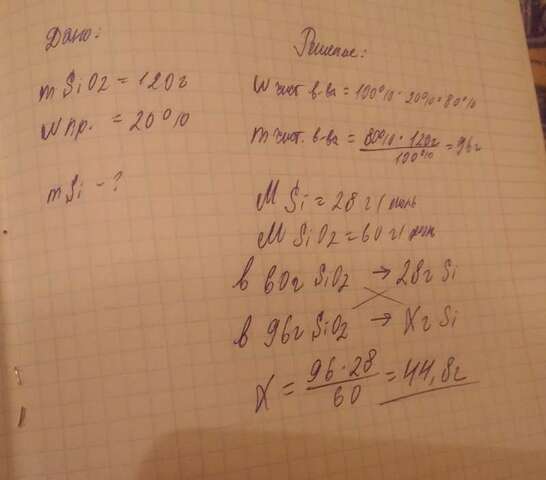 Дано:
m SiO2 = 120г
W пр. = 20%
m Si - ?
Решение:
W чист. в-ва = 100% - 20% = 80%
m чист. в-ва = 80% · 120г / 100% = 96г
M Si = 28 г/моль
M SiO2 = 60 г/моль
в 60г SiO2 → 28г Si
в 96г SiO2 → Xг Si
X = 96 · 28 / 60 = 44,8г